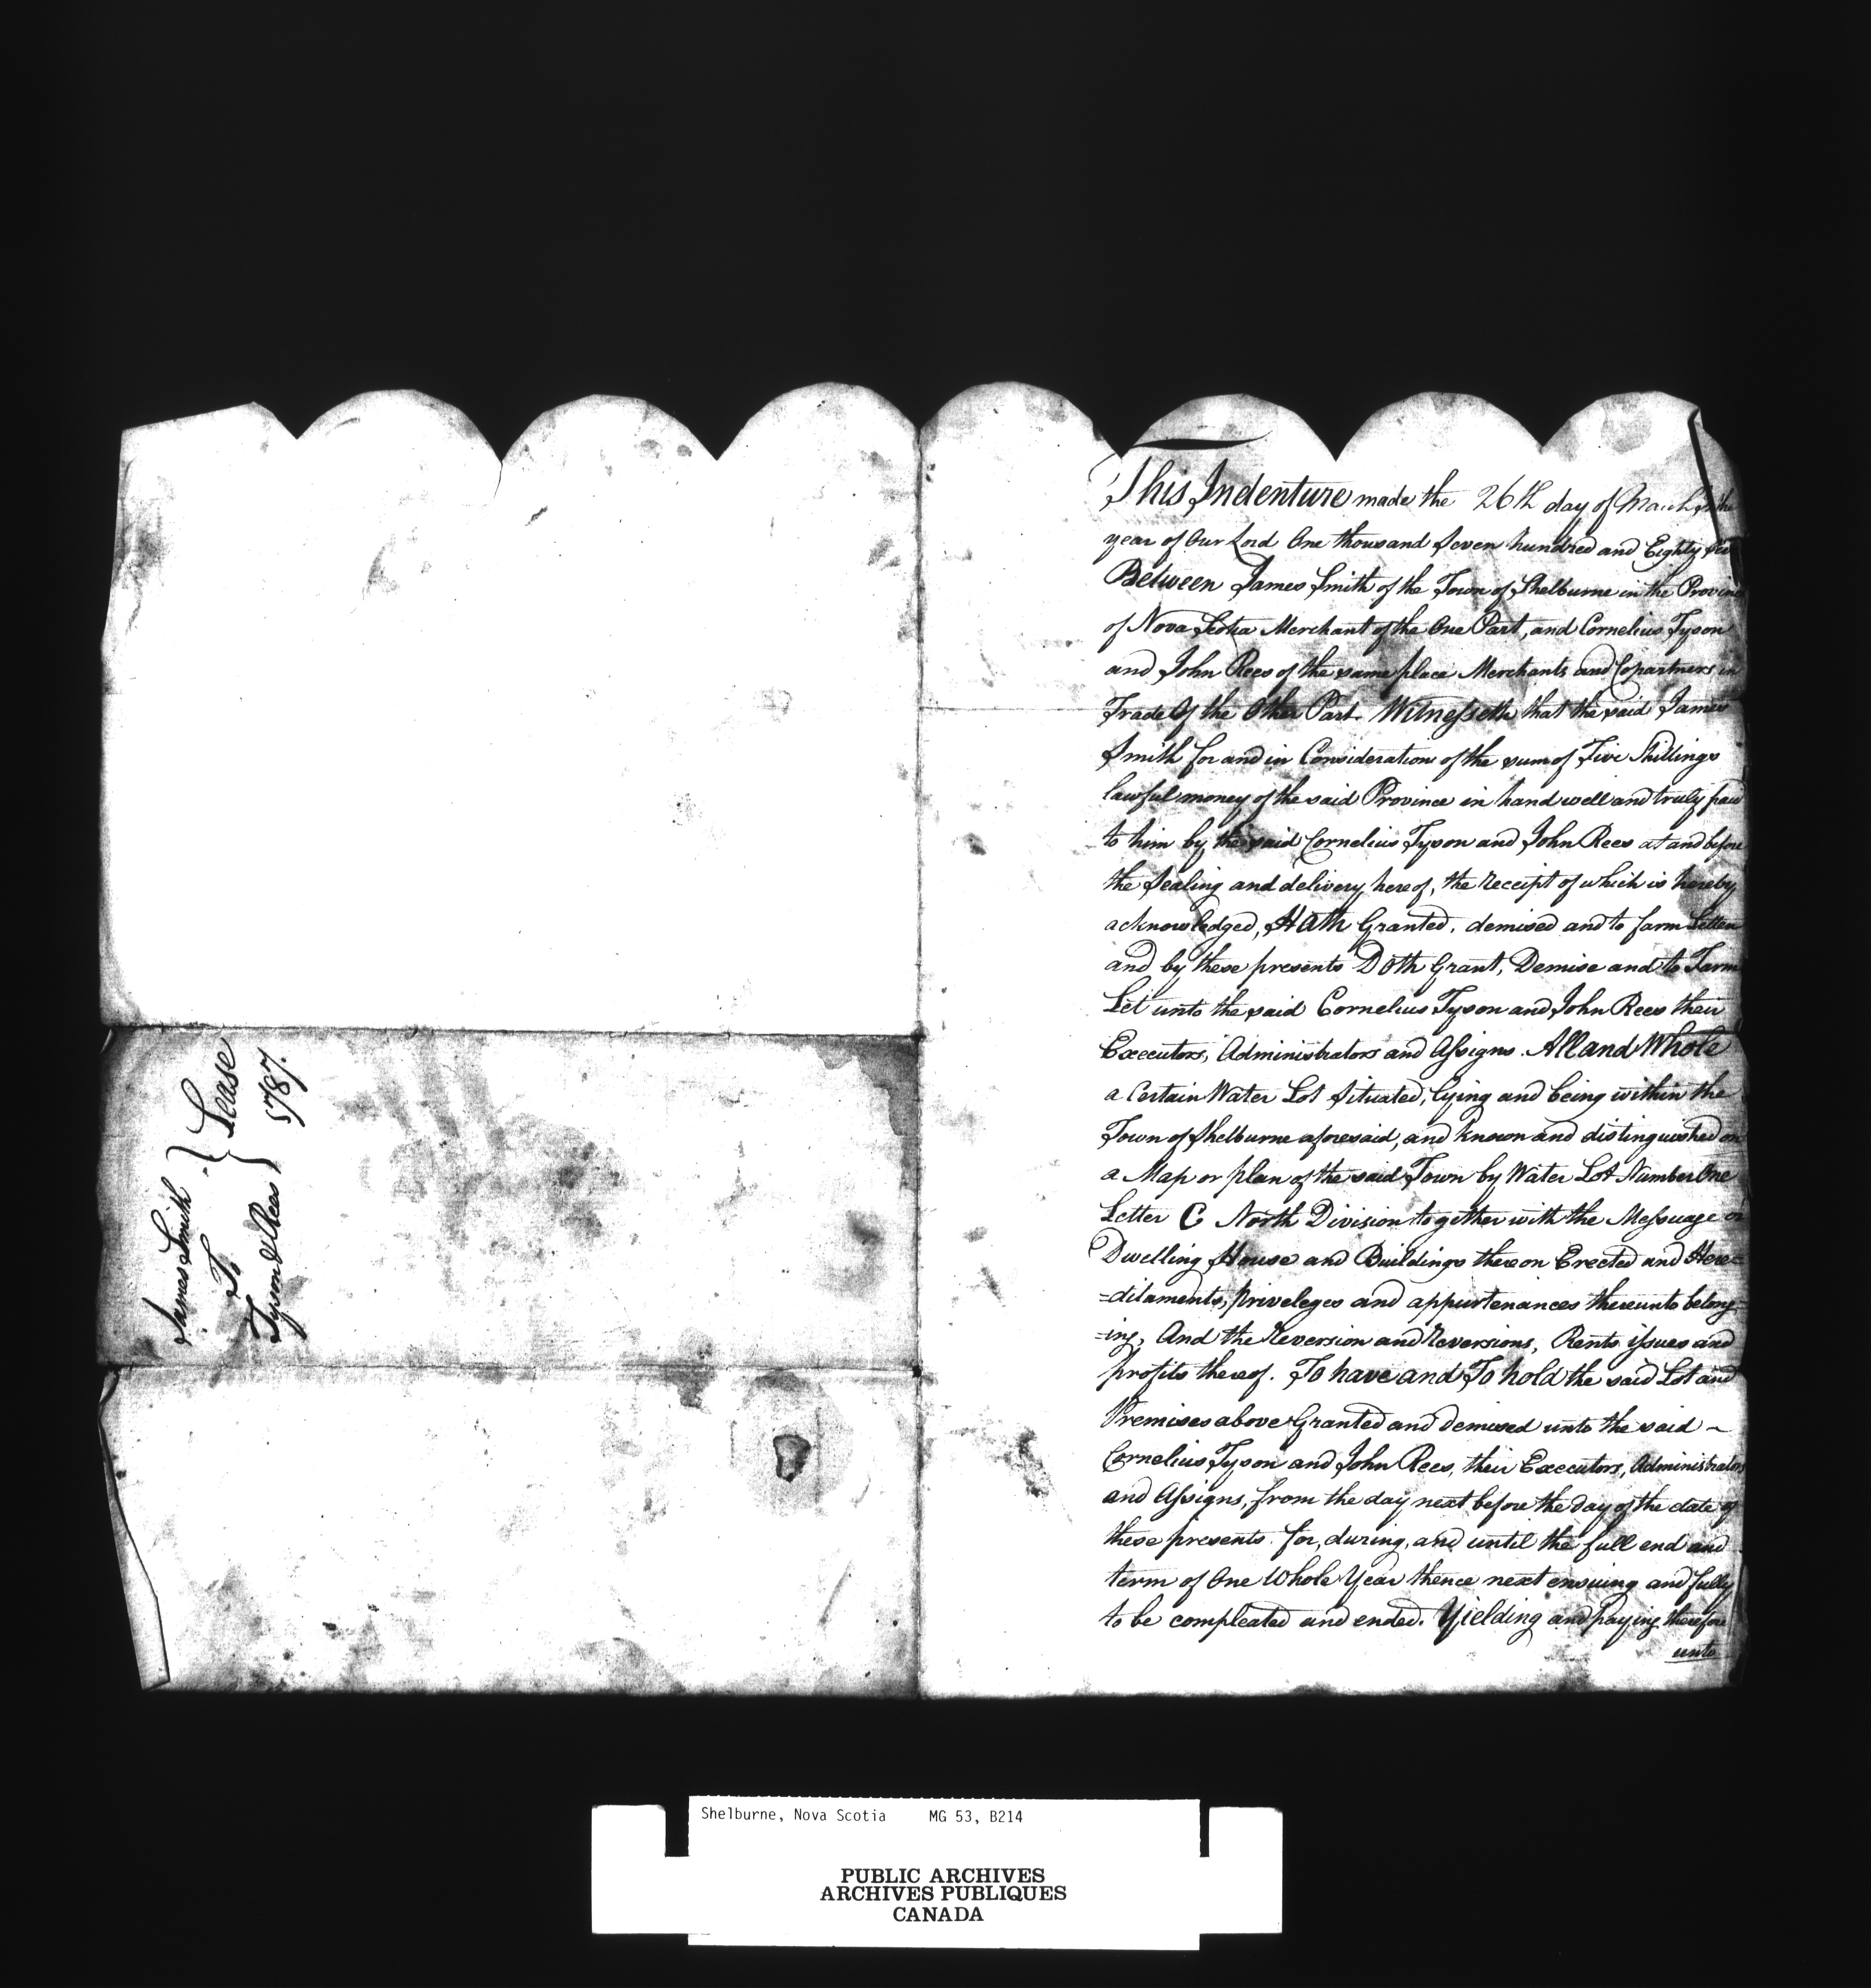 James Smith
To
Tyson & Rees
Lease
1787.
This Indenture made the 26th day of March In the
year of Our Lord One thousand Seven hundred and Eighty
Between James Smith of the Town of Shelburne in the Province
of Nova Scotia Merchant of the One Part, and Cornelius Tyson
and John Rees of the same place Merchants and Copartners in
Trade Of the Other Part. Witnesseth that the said James
Smith for and in Consideration of the sum of Five Shillings
lawful money of the said Province in hand well and truly paid
to him by the said Cornelius Tyson and John Rees at and before
the Sealing and delivery hereof, the Receipt of which is hereby
acknowledged, Hath Granted, demised and to farm Letten
and by these presents Doth Grant, Demise and to Farm
Let unto the said Cornelius Tyson and John Rees their
Executors, Administrators and Assigns. All and Whole
a Certain Water Lot Situated, lying and being within the
Town of Shelburne aforesaid, and known and distinguished on
a Map or plan of the said Town by Water Lot Number One
Letter C North Division together with the Messuage or
Dwelling House and Buildings thereon Erected and Here=
=ditaments, priveleges and appurtenances thereunto belong=
=ing, And the Reversion and Reversions, Rents issues and
profits thereof. To have and To hold the said Lot and
Premises above Granted and demised unto the said ~
Cornelius Tyson and John Rees, their Executors, Administrators
and Assigns, from the day next before the day of the date of
these presents for, during, and until the full end and
term of One Whole Year thence next ensuing and fully
to be compleated and ended. Yielding and paying therefore
unto
Shelburne, Nova Scotia MG 53, B214
PUBLIC ARCHIVES
ARCHIVES PUBLIQUES
CANADA